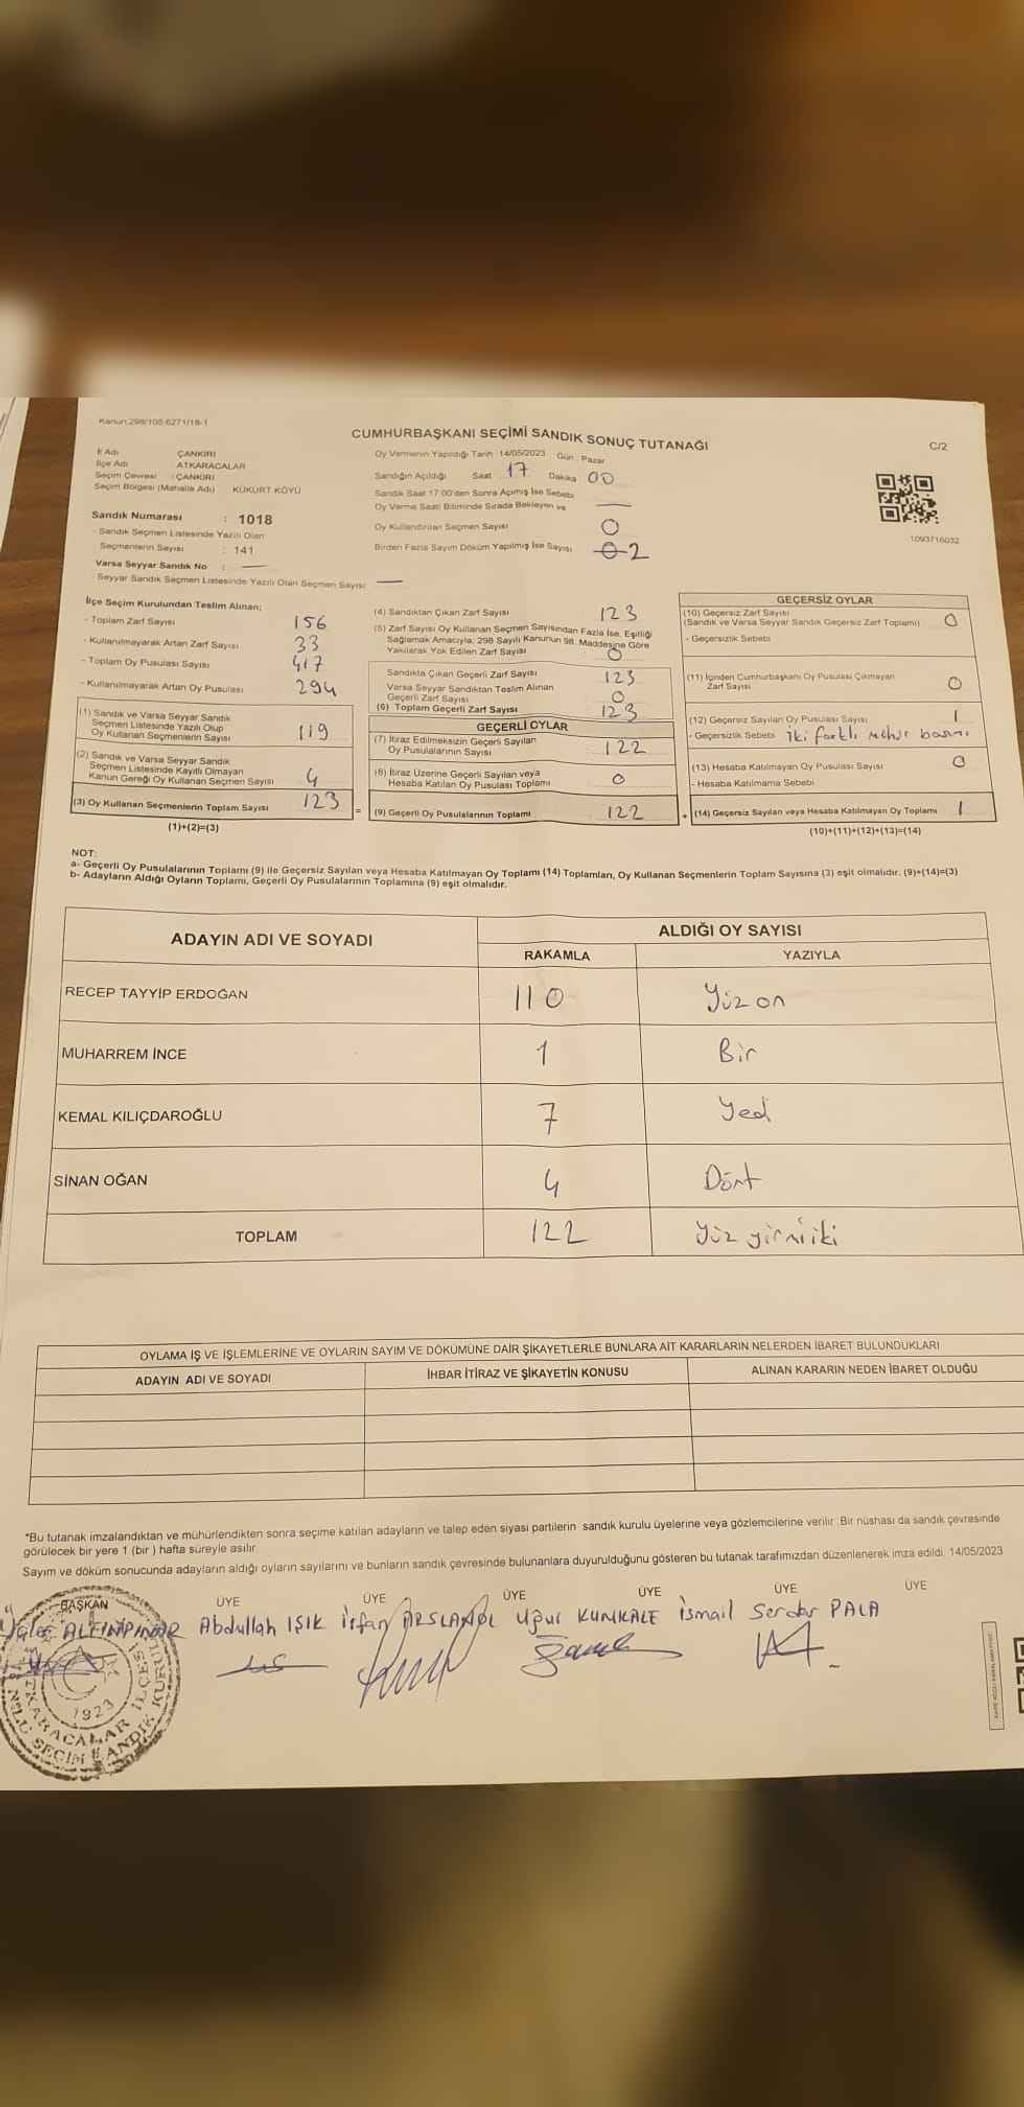 Kanun:298/105-6271/18-1
CUMHURBAŞKANI SEÇİMİ SANDIK SONUÇ TUTANAĞI
C/2
İl Adı ÇANKIRI
İlçe Adı ATKARACALAR
Seçim Çevresi : ÇANKIRI
Seçim Bölgesi (Mahalle Adı) KÜKÜRT KÖYÜ
Sandık Numarası : 1018
- Sandık Seçmen Listesinde Yazılı Olan
Seçmenlerin Sayısı : 141
Varsa Seyyar Sandık No :
- Seyyar Sandık Seçmen Listesinde Yazılı Olan Seçmen Sayısı:
Oy Vermenin Yapıldığı Tarih 14/05/2023 Gün Pazar
Sandığın Açıldığı Saat 17 Dakika 00
Sandık Saat 17.00'den Sonra Açılmış İse Sebebi
Oy Verme Saati Bitiminde Sırada Bekleyen ve
Oy Kullandırılan Seçmen Sayısı 0
Birden Fazla Sayım Döküm Yapılmış İse Sayısı 0 2
1093716032
İlçe Seçim Kurulundan Teslim Alınan;
- Toplam Zarf Sayısı 156
- Kullanılmayarak Artan Zarf Sayısı 33
- Toplam Oy Pusulası Sayısı 417
- Kullanılmayarak Artan Oy Pusulası 294
(1) Sandık ve Varsa Seyyar Sandık
Seçmen Listesinde Yazılı Olup
Oy Kullanan Seçmenlerin Sayısı 119
(2) Sandık ve Varsa Seyyar Sandık
Seçmen Listesinde Kayıtlı Olmayan
Kanun Gereği Oy Kullanan Seçmen Sayısı 4
(3) Oy Kullanan Seçmenlerin Toplam Sayısı 123
(1)+(2)=(3)
(4) Sandıktan Çıkan Zarf Sayısı 123
(5) Zarf Sayısı Oy Kullanan Seçmen Sayısından Fazla İse, Eşitliği
Sağlamak Amacıyla, 298 Sayılı Kanunun 98. Maddesine Göre
Yakılarak Yok Edilen Zarf Sayısı 0
Sandıkta Çıkan Geçerli Zarf Sayısı 123
Varsa Seyyar Sandıktan Teslim Alınan
Geçerli Zarf Sayısı 0
(6) Toplam Geçerli Zarf Sayısı 123
GEÇERLİ OYLAR
(7) İtiraz Edilmeksizin Geçerli Sayılan
Oy Pusulalarının Sayısı 122
(8) İtiraz Üzerine Geçerli Sayılan veya
Hesaba Katılan Oy Pusulası Toplamı 0
= (9) Geçerli Oy Pusulalarının Toplamı 122
GEÇERSİZ OYLAR
(10) Geçersiz Zarf Sayısı
(Sandık ve Varsa Seyyar Sandık Geçersiz Zarf Toplamı) 0
- Geçersizlik Sebebi
(11) İçinden Cumhurbaşkanı Oy Pusulası Çıkmayan
Zarf Sayısı 0
(12) Geçersiz Sayılan Oy Pusulası Sayısı 1
- Geçersizlik Sebebi iki farklı mühür basımı
(13) Hesaba Katılmayan Oy Pusulası Sayısı 0
- Hesaba Katılmama Sebebi
+ (14) Geçersiz Sayılan veya Hesaba Katılmayan Oy Toplamı 1
(10)+(11)+(12)+(13)=(14)
NOT:
a- Geçerli Oy Pusulalarının Toplamı (9) ile Geçersiz Sayılan veya Hesaba Katılmayan Oy Toplamı (14) Toplamları, Oy Kullanan Seçmenlerin Toplam Sayısına (3) eşit olmalıdır. (9)+(14)=(3)
b- Adayların Aldığı Oyların Toplamı, Geçerli Oy Pusulalarının Toplamına (9) eşit olmalıdır.
ADAYIN ADI VE SOYADI
ALDIĞI OY SAYISI
RAKAMLA YAZIYLA
RECEP TAYYİP ERDOĞAN 110 Yüz on
MUHARREM İNCE 1 Bir
KEMAL KILIÇDAROĞLU 7 Yedi
SİNAN OĞAN 4 Dört
TOPLAM 122 Yüz yirmiiki
OYLAMA İŞ VE İŞLEMLERİNE VE OYLARIN SAYIM VE DÖKÜMÜNE DAİR ŞİKAYETLERLE BUNLARA AİT KARARLARIN NELERDEN İBARET BULUNDUKLARI
ADAYIN ADI VE SOYADI İHBAR İTİRAZ VE ŞİKAYETİN KONUSU ALINAN KARARIN NEDEN İBARET OLDUĞU
*Bu tutanak imzalandıktan ve mühürlendikten sonra seçime katılan adayların ve talep eden siyasi partilerin sandık kurulu üyelerine veya gözlemcilerine verilir. Bir nüshası da sandık çevresinde
görülecek bir yere 1 (bir ) hafta süreyle asılır.
Sayım ve döküm sonucunda adayların aldığı oyların sayılarını ve bunların sandık çevresinde bulunanlara duyurulduğunu gösteren bu tutanak tarafımızdan düzenlenerek imza edildi. 14/05/2023
BAŞKAN ÜYE ÜYE ÜYE ÜYE ÜYE ÜYE
ALTINPINAR Abdullah IŞIK İrfan ARSLANOL Uğur KUMKALE İsmail Serdar PALA
1923
ATKARACALAR İLÇESİ
SEÇİM SANDIK KURULU